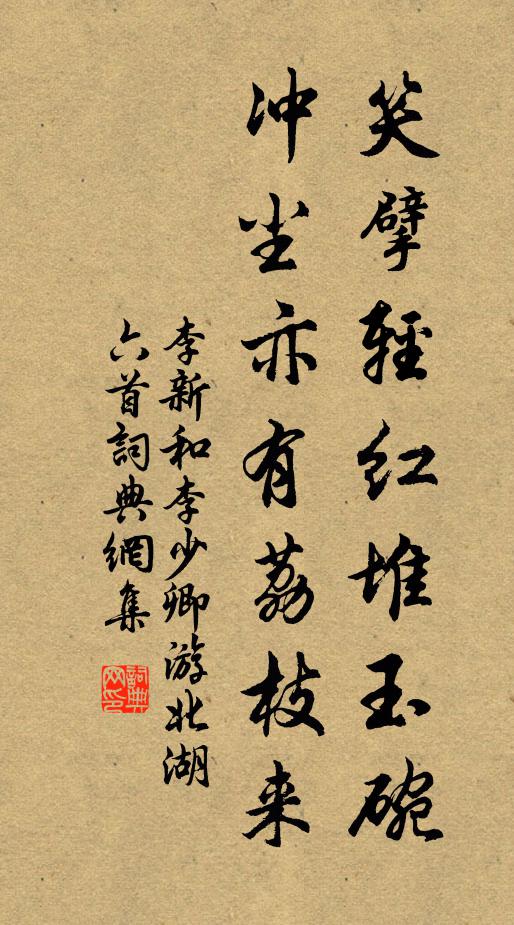 笑擘輕红堆玉碗
冲尘亦有荔枝来
李新和李少卿游北湖
六首詞典網集
詞典网印